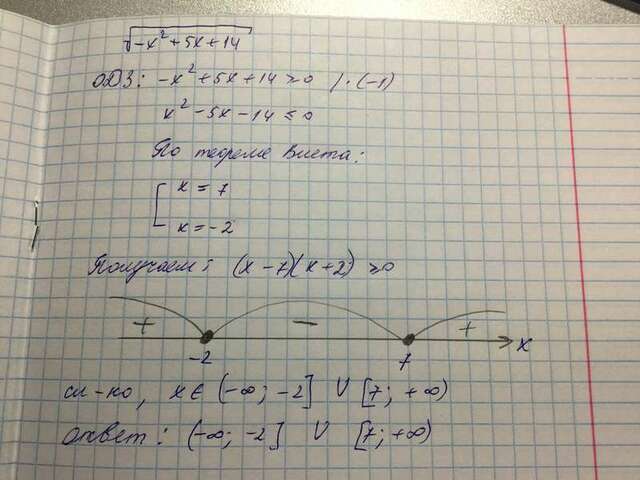 √(-x² + 5x + 14)
ОДЗ: -x² + 5x + 14 ≥ 0 /·(-1)
x² - 5x - 14 ≤ 0
По теореме Виета:
[ x = 7
x = -2
Получаем: (x - 7)(x + 2) ≥ 0
+ - +
-2 7 x
сл-но, x ∈ (-∞; -2] ∪ [7; +∞)
Ответ: (-∞; -2] ∪ [7; +∞)